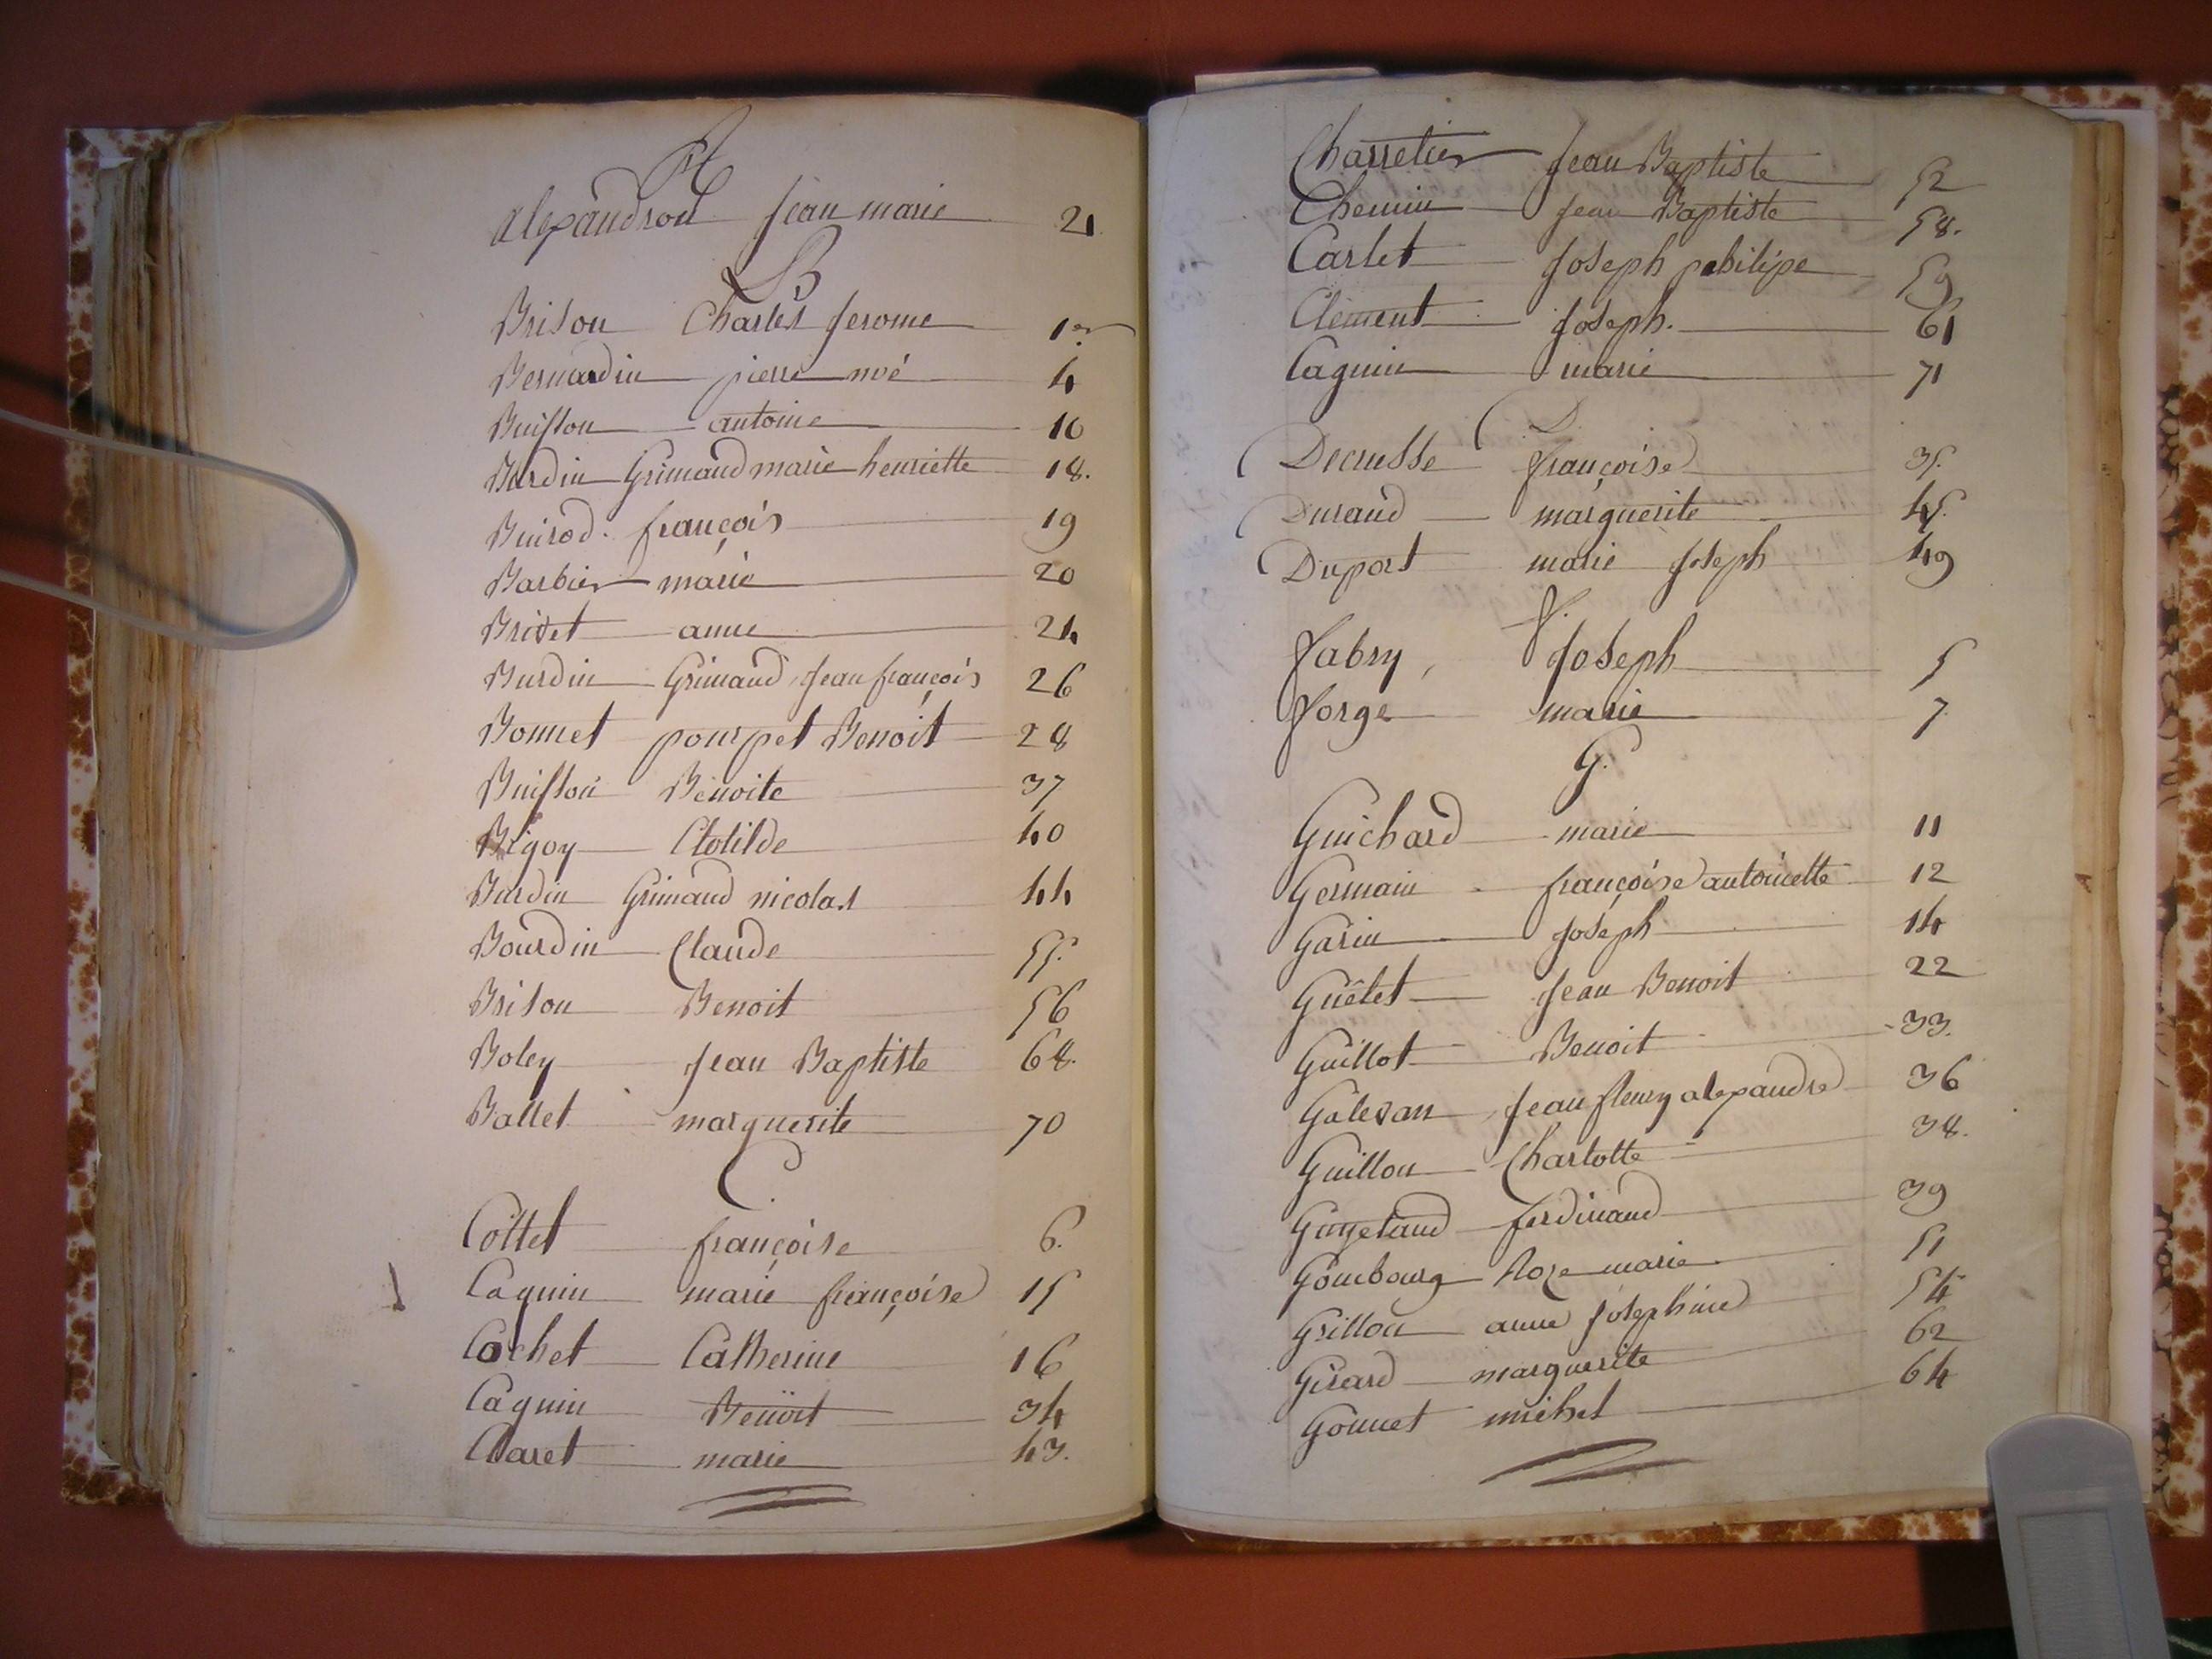 A
alexandrou Jean marie 21
B
Brison Charles Jerome 1er
Bernardin pierre noé 4
Buisson antoine 10
Burdin Grimaud marie henriette 18.
Buirod. françois 19
Barbier marie 20
Brivet anne 24
Burdin Grimaud Jean françois 26
Bonnet pourpet Benoit 28
Buisson Benoite 37
Bigoy Clotilde 40
Burdin Grimaud nicolas 44
Bourdin Claude 55.
Brison Benoit 56
Boley Jean Baptiste 68.
Ballet marguerite 70
C.
Cottet françoise 6.
Caquin marie françoise 15
Cochet Catherine 16
Caquin Benoit 34
Claret marie 43.
Charretier Jean Baptiste 52
Chemin Jean Baptiste 58.
Carlet Joseph philipe 59
Clement Joseph. 61
Caquin marie 71
D.
Decrusse françoise 35.
Durand marguerite 45.
Duport marie Joseph 49
f.
fabry, Joseph 5
forge marie 7
G.
Guichard marie 11
Germain françoise antoinette 12
Garin Joseph 14
Guêlet Jean Benoit 22
Guillot Benoit 33.
Galevan Jean fleury alexandre 36
Guillon Charlotte 38.
Guyetaud ferdinand 39
Gombourg Roze marie 51
Grillon anne Josephine 54
Girard marguerite 62
Gonnet michel 64